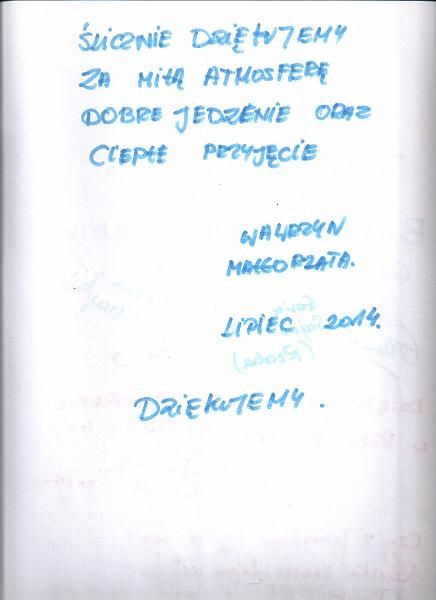 ŚLICZNIE DZIĘKUJEMY
ZA MIŁĄ ATMOSFERĘ
DOBRE JEDZENIE ORAZ
CIEPŁE PRZYJĘCIE
WAWRZYN
MAŁGORZATA.
LIPIEC 2014.
DZIĘKUJEMY.